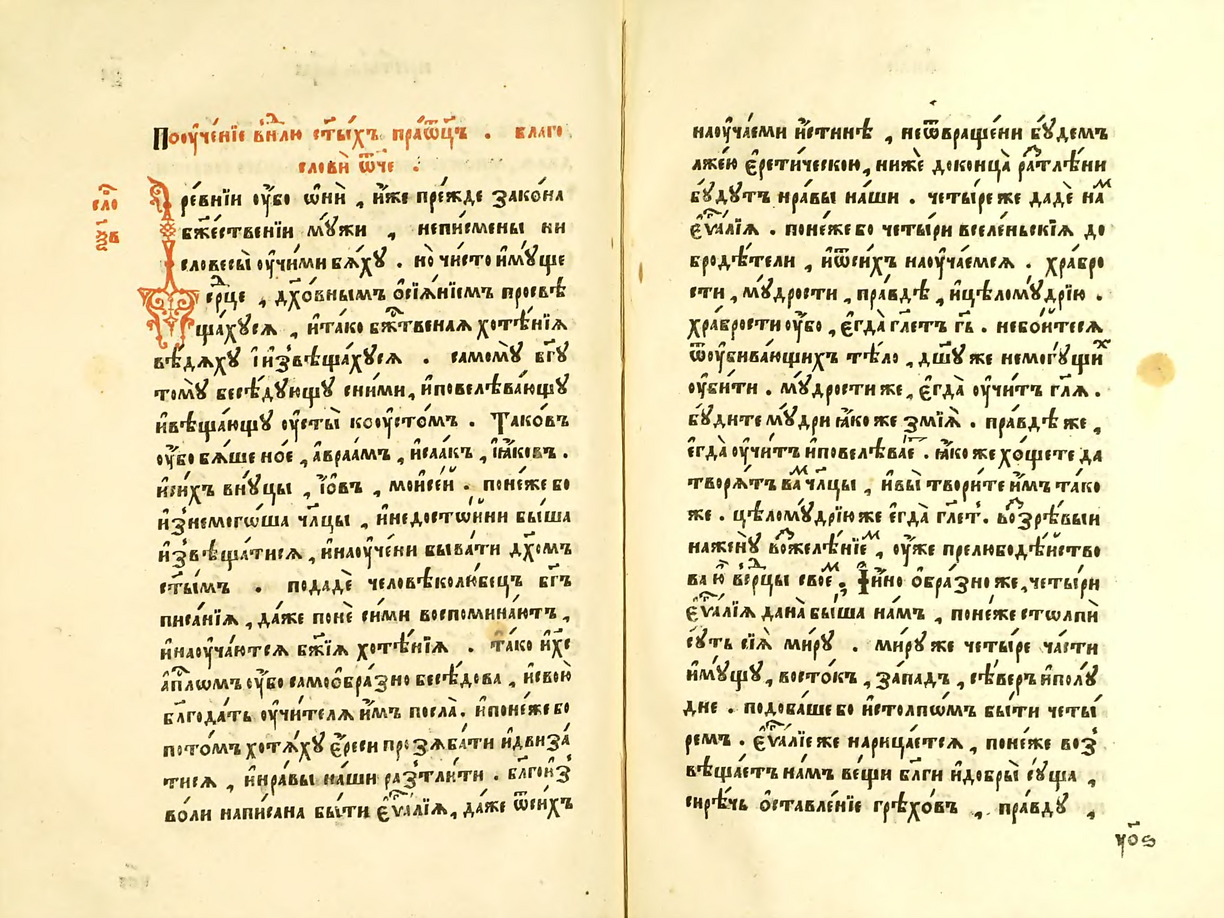 Поꙋче́нїе внⷣлю ст҃ы́хъ пра́ѿц҃ъ . благо
слови̂ ѿч҃е .
сло҃
ѯ҃в
Дре́внїи ᲂу҆́бо ѻ҆ни̂ , и҆́же пре́жде зако́на
бж҃е́ственїи мꙋ́жи , неписмены ни
словесы̀ ᲂу҆чи́ми бѧ́хꙋ . но̀ чи́сто и҆мꙋще
се́рⷣце , дх҃о́внымъ ѻ҆сїѧ́нїемъ просвѣ
ща́хꙋсѧ , и҆та́ко бж҃́твенаѧ хотѣ́нїѧ
вѣ́дѧхꙋ і҆и҆звѣща́хꙋсѧ . самомꙋ̀ бг҃ꙋ
томꙋ̀ бесѣ́дꙋющꙋ сни́ми , и҆повелѣва́ющꙋ
и҆вѣща́ющꙋ ᲂу҆сты̀ коᲂу҆сто́мъ . Тако́въ
ᲂу҆́бо бѧ́ше но́е , а҆враа́мъ , и҆саа́къ , і҆а́ковъ .
и҆си́хъ внꙋ́цы , і҆́ѡвъ , мои҆се́й . поне́же бо
и҆знемого́ша чл҃цы , и҆недосто́йни бы́ша
и҆звѣща́тисѧ , и҆наᲂу҆че́ни быва́ти дх҃о́мъ
ст҃ы́мъ . подадѐ человѣколю́бецъ бг҃ъ
писа́нїѧ , да́же понѐ си́ми воспомина́ютъ ,
и҆наᲂу҆ча́ютсѧ бж҃їѧ хотѣ́нїѧ . та́ко и҆хс҃
а҆пⷭ҇лѡмъ ᲂу҆́бо самоѻбра́зно бесѣ́дова , и҆свою
бл҃года́ть ᲂу҆чи́телѧ и҆̀мъ посла̀ . и҆поне́же бо
пото́мъ хотѧ́хꙋ є҆́реси прозѧба́ти и҆дви́за
тисѧ , и҆нра́вы на́ши разтли́ти . бл҃гоиз
во́ли напи́сана бы́ти є҆ѵⷢ҇а́лїѧ , да́же ѿси́хъ
наᲂу҆ча́еми и҆́стиннѣ , неѿвраще́ни бꙋ́демъ
лже́ю є҆рети́ческою , нижѐ доконца̀ растлѣ́ни
бꙋ́дꙋтъ нра́вы на́ши . четы́ре же дадѐ на́мъ
є҆ѵⷢ҇а́лїѧ . поне́же бо четы́ри вселе́ньскїѧ до
бродѣ́тели , и҆ѿси́хъ наᲂу҆ча́емсѧ . хра́бро
сти , мꙋ́дрости , пра́вдѣ , и҆цѣломꙋ́дрїю .
хра́брости ᲂу҆́бо , є҆гда̀ гл҃етъ гь҃ . небо́йтесѧ
ѿꙋбива́ющихъ тѣ́ло , дш҃ꙋ же немогꙋ́щиⷯ
ᲂу҆би́ти . мꙋ́дрости же , є҆гда̀ ᲂу҆чи́тъ гл҃ѧ .
бꙋ́дите мꙋ́дри ꙗ҆́ко же змїѧ̀ . пра́вдѣ же ,
є҆гда̀ ᲂу҆чи́тъ и҆повелѣва́еⷮ . ꙗ҆́ко же хо́щете да
творѧ́тъ ва́ⷨ чл҃цы , и҆вы̀ твори́те и҆̀мъ та́ко
же . цѣломꙋ́дрїю же є҆гда̀ гл҃етъ . воззрѣ́выи
наженꙋ̀ вожделѣ́нїеⷨ , ᲂу҆жѐ прелюбодѣ́йство
ва ю҆̀ всеⷬ҇рцы свое́ⷨ . И҆́но ѻ҆́бразно же , четы́ри
є҆ѵⷢ҇а́лїѧ дана̀ бы́ша на́мъ , поне́же столпѝ
сꙋ́ть сїѧ̀ ми́рꙋ . ми́рꙋ же четы́ре ча́сти
и҆мꙋ́щꙋ , восто́къ , за́падъ , сѣ́веръ и҆полꙋ
дне . подоба́ше бо и҆столпѡ́мъ бы́ти четы́
ремъ . є҆ѵⷢ҇а́лїе же нарица́етсѧ , поне́же воз
вѣща́етъ на́мъ ве́щи бл҃ги и҆добры̀ сꙋ́ща ,
си́рѣчь ѻ҆ставле́нїе грѣхо́въ , пра́вдꙋ ,